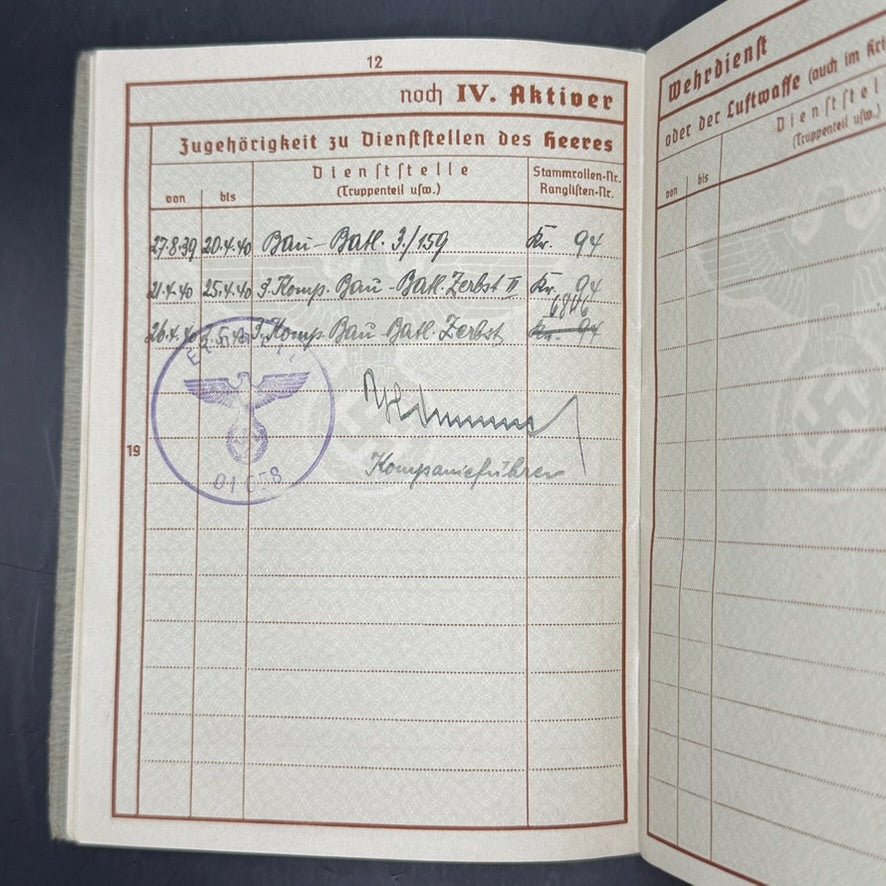 12
noch IV. Aktiver
Zugehörigkeit zu Dienststellen des Heeres
von
bis
Dienststelle
(Truppenteil usw.)
Stammrollen-Nr.
Ranglisten-Nr.
27.8.39 20.4.40 Bau-Batl. 3./159 Kr. 94
21.4.40 25.4.40 3. Komp. Bau-Batl. Zerbst II Kr. 94
6846
26.4.40 3. Komp. Bau-Batl. Zerbst Kr. 94
19
Kompanieführer
Wehrdienst
oder der Luftwaffe (auch im Kri
Dienststel
(Truppenteil usw.)
von
bis